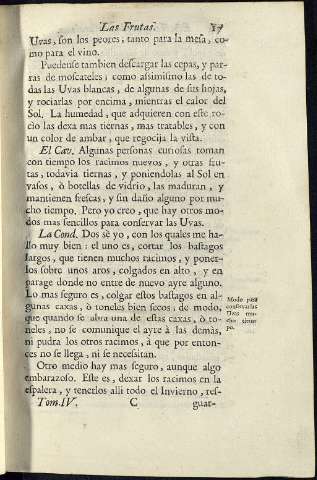 Las Frutas.
Uvas, son los peores, tanto para la mesa, co-
mo para el vino.
Puedense tambien descargar las cepas, y par-
ras de moscateles; como assimismo las de to-
das las Uvas blancas, de algunas de sus hojas,
y rociarlas por encima, mientras el calor del
Sol. La humedad, que adquieren con este ro-
cio las dexa mas tiernas, mas tratables, y con
un color de ambar, que regocija la vista.
El Cav. Algunas personas curiosas toman
con tiempo los racimos nuevos, y otras fru-
tas, todavia tiernas, y poniendolas al Sol en
vasos, ò botellas de vidrio, las maduran, y
mantienen frescas, y sin daño alguno por mu-
cho tiempo. Pero yo creo, que hay otros mo-
dos mas sencillos para conservar las Uvas.
La Cond. Dos sè yo, con los quales me ha-
llo muy bien: el uno es, cortar los bastagos
largos, que tienen muchos racimos, y poner-
los sobre unos aros, colgados en alto, y en
parage donde no entre de nuevo ayre alguno.
Lo mas seguro es, colgar estos bastagos en al-
gunas caxas, ò toneles bien secos, de modo,
que quando se abra una de estas caxas, ò to-
neles, no se comunique el ayre à las demàs,
ni pudra los otros racimos, à que por enton-
ces no se llega, ni se necessitan.
Modo para
conservarlas
Uvas mu-
cho tiem-
po.
Otro medio hay mas seguro, aunque algo
embarazoso. Este es, dexar los racimos en la
espalera, y tenerlos alli todo el Invierno, res-
Tom. IV. C guar-